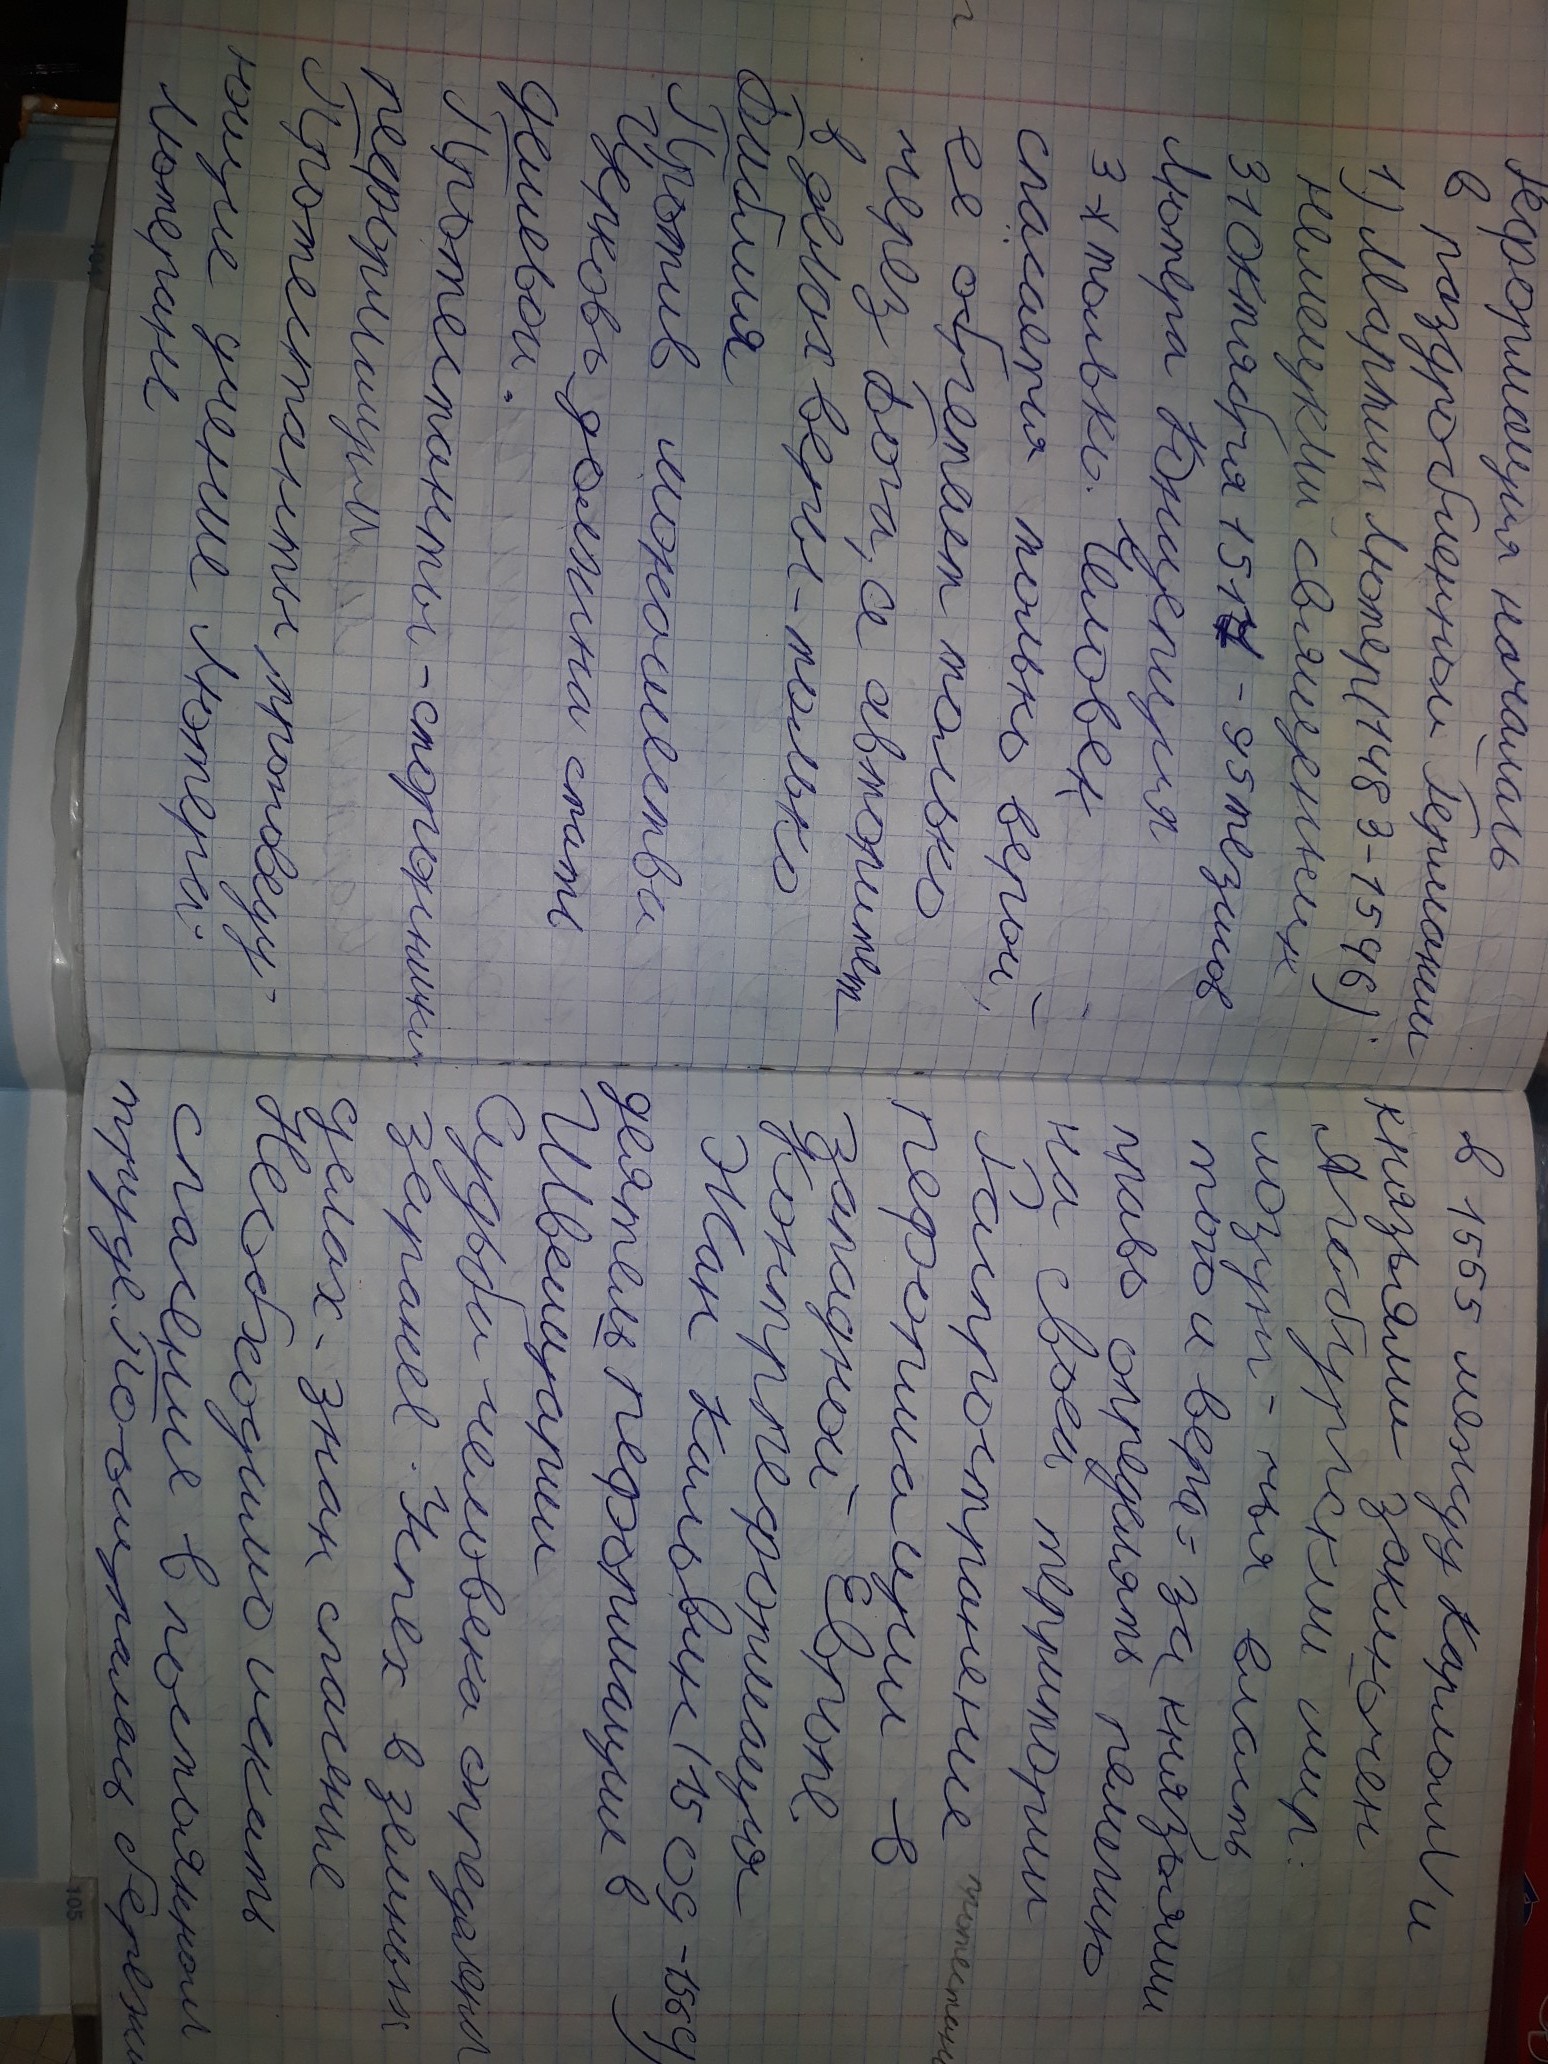 Реформация началась
в раздробленной Германии
1) Мартин Лютер(1483-1546).
немецкий священник
31октября 1517 - 95тезисов
Лютера Концепция
3х только. Человек
спасается только верой,
ее обретает только
через Бога, се авторитет
в делах веры-только
Библия
Против монашества
Церковь должна стать
дешевой.
Протестанты-сторонники
реформации
Протестанты, проповеду-
ющие учение Лютера.
Лютеране
в 1555 между Карлом и
князьями заключен
Аугсбургский мир:
лозунг - чья власть
того и вера = за князьями
право определять религию
на своей территории
Распространение протестан
реформации в
западной Европе.
Контрреформация
Жан Кальвин(1509-1564)
деятель реформации в
Швейцарии
Судьба человека определена
заранее. Успех в земных
делах-знак спасение
Необходимо искать
спасение в постоянном
труде. Поощрялась бережли
104
105